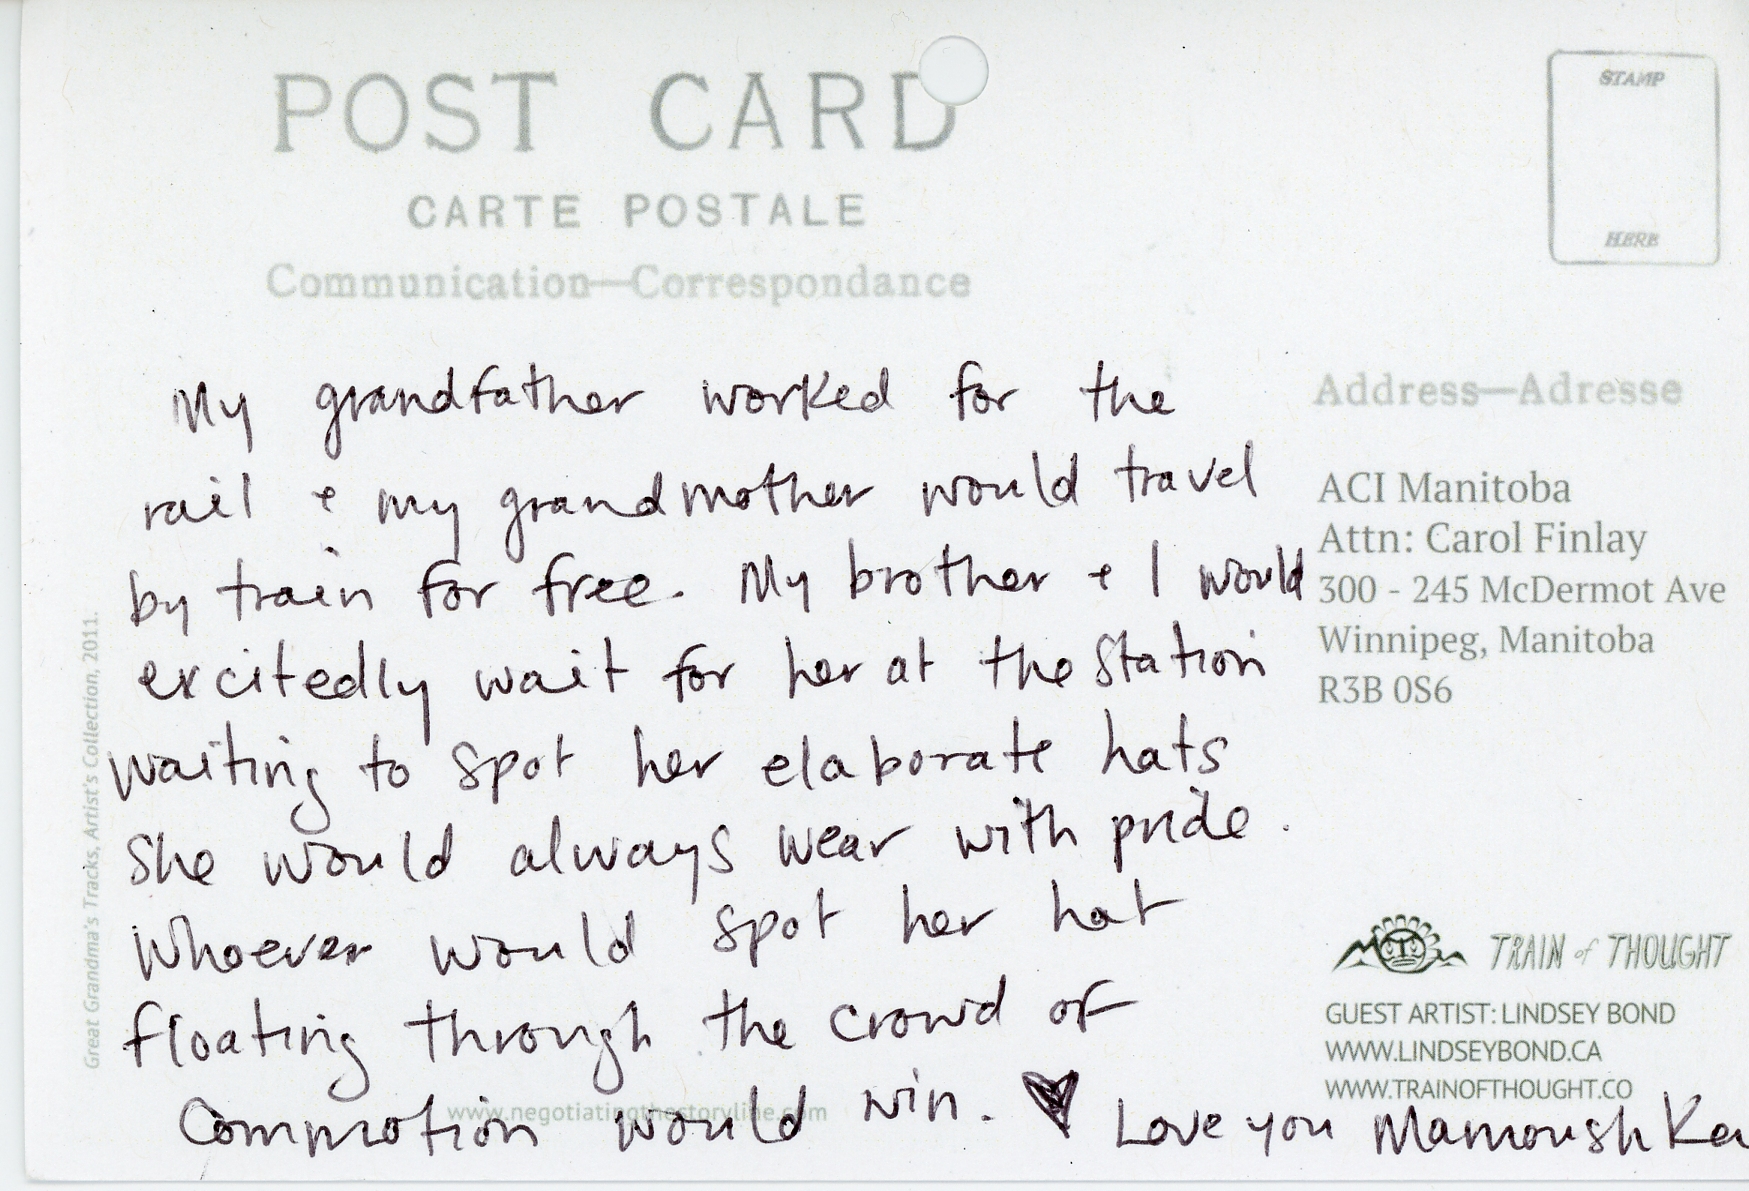 POST CARD
CARTE POSTALE
Communication—Correspondance
STAMP
HERE
My grandfather worked for the
rail + my grandmother would travel
by train for free. My brother + I would
excitedly wait for her at the station
waiting to spot her elaborate hats
she would always wear with pride.
Whoever would spot her hat
floating through the crowd of
commotion would win. ♥ Love you Mamoushka
www.negotiatingthestoryline.com
Great Grandma's Tracks, Artist's Collection, 2011.
Address—Adresse
ACI Manitoba
Attn: Carol Finlay
300 - 245 McDermot Ave
Winnipeg, Manitoba
R3B 0S6
TRAIN of THOUGHT
GUEST ARTIST: LINDSEY BOND
WWW.LINDSEYBOND.CA
WWW.TRAINOFTHOUGHT.CO